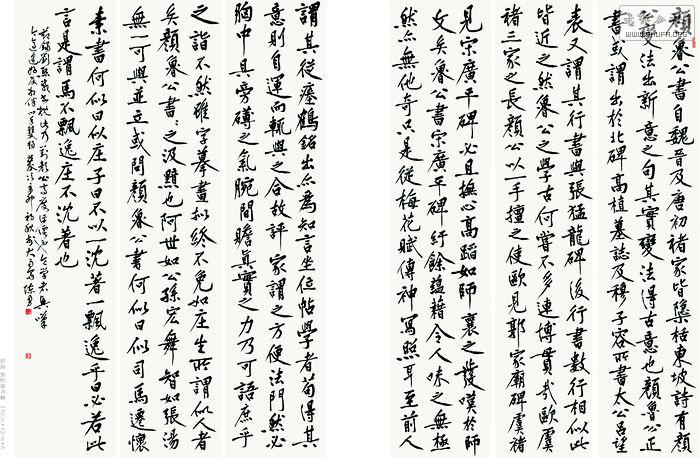 顏魯公書自魏晉及唐初諸家皆檃栝東坡詩有顏
公變法出新意之句其實變法得古意也顏魯公正
書或謂出於北碑高植墓誌及穆子容所書太公呂望
表又謂其行書與張猛龍碑後行書數行相似此
皆近之然魯公之學古何嘗不多連博貫哉歐虞
褚三家之長顏公以一手擅之使歐見郭家廟碑虞褚
見宋廣平碑必且撫心高蹈如師襄之發嘆於師
文矣魯公書宋廣平碑紆餘蘊藉令人味之無極
然亦無他奇只是從梅花賦傳神寫照耳至前人
謂其從瘞鶴銘出亦為知言坐位帖學者苟得其
意則自運而輒與之合故評家謂之方便法門然必
胸中具旁礴之氣腕間贍真實之力乃可語庶乎
之詣不然雖字摹畫擬終不免如庄生所謂似人者
矣顏魯公書〻之汲黯也阿世如公孫宏舞智如張湯
無一可與並立或問顏魯公書何似曰似司馬遷懷
素書何似曰似庄子曰不以一沈著一飄逸乎曰必若此
言是謂馬不飄逸庄不沈著也